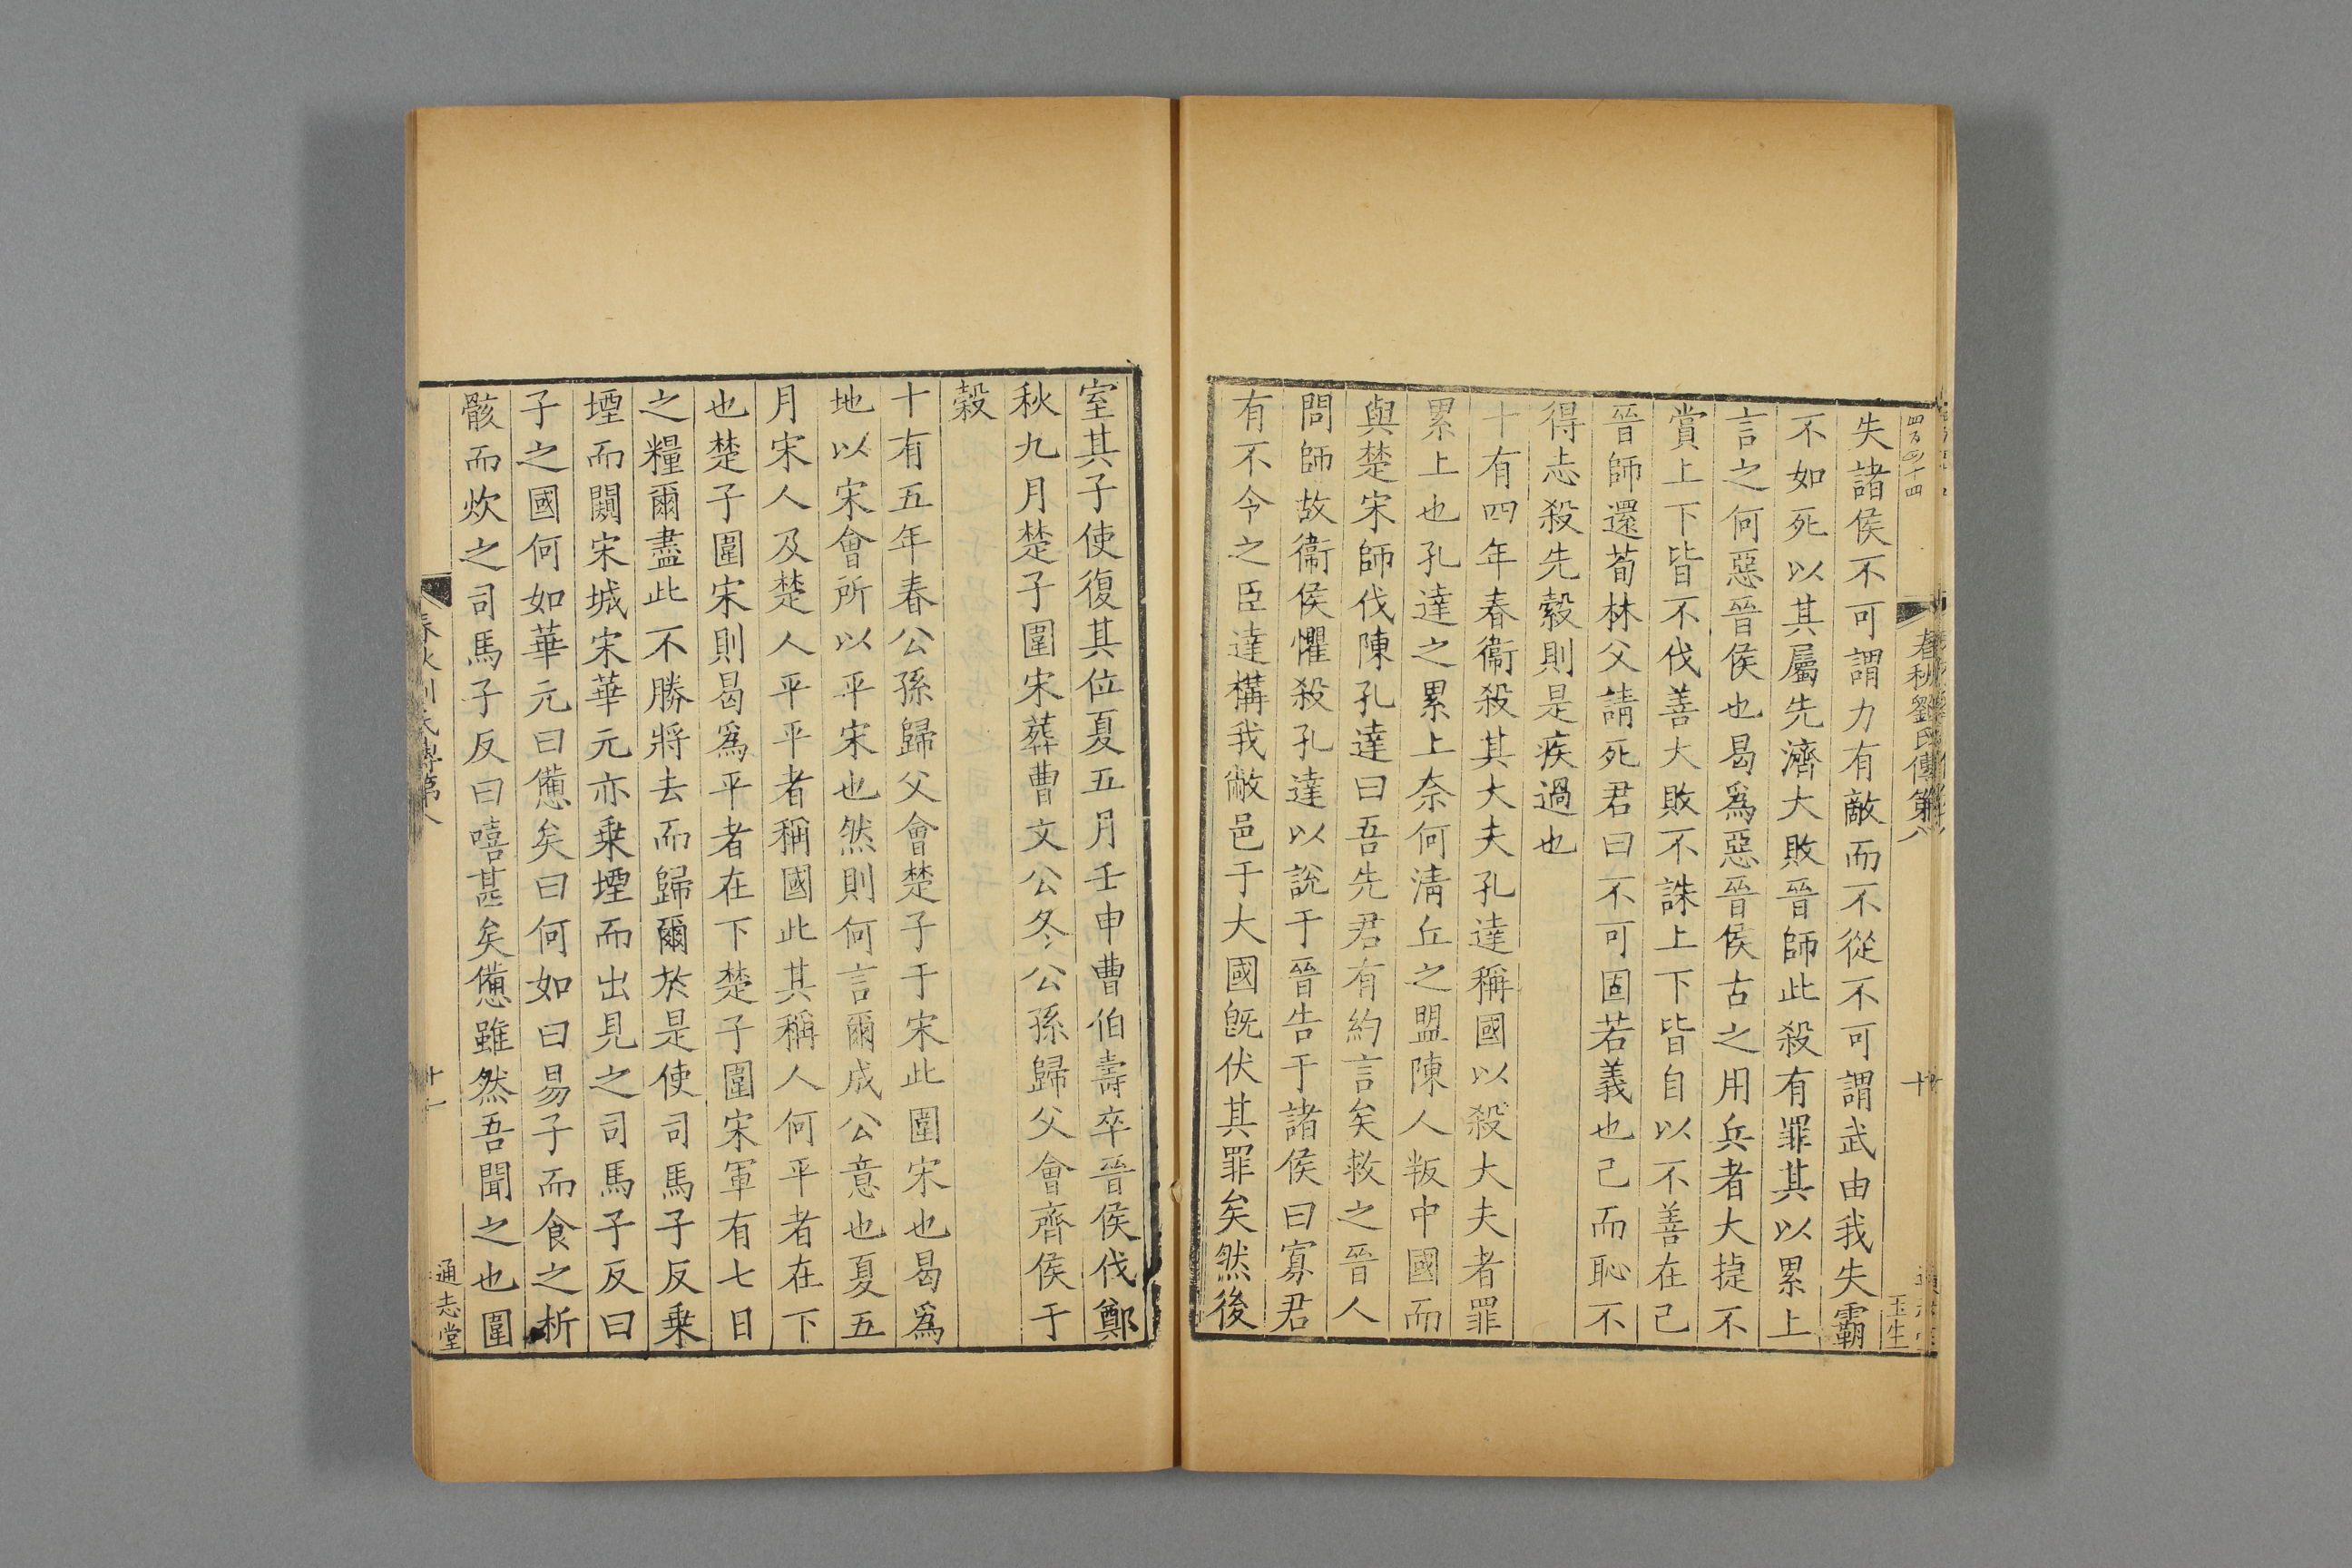 四百四十四
春秋劉氏傳第八
十
玉生
失諸侯不可謂力有敵而不從不可謂武由我失霸
不如死以其屬先濟大敗晉師此殺有罪其以累上
言之何惡晉侯也曷爲惡晉侯古之用兵者大捷不
賞上下皆不伐善大敗不誅上下皆自以不善在己
晉師還荀林父請死君曰不可固若義也己而恥不
得志殺先縠則是疾過也
十有四年春衞殺其大夫孔達稱國以殺大夫者罪
累上也孔達之累上奈何淸丘之盟陳人叛中國而
與楚宋師伐陳孔達曰吾先君有約言矣救之晉人
問師故衞侯懼殺孔達以說于晉告于諸侯曰寡君
有不令之臣達構我敝邑于大國旣伏其罪矣然後
室其子使復其位夏五月壬申曹伯壽卒晉侯伐鄭
秋九月楚子圍宋葬曹文公冬公孫歸父會齊侯于
穀
十有五年春公孫歸父會楚子于宋此圍宋也曷爲
地以宋會所以平宋也然則何言爾成公意也夏五
月宋人及楚人平平者稱國此其稱人何平者在下
也楚子圍宋則曷爲平者在下楚子圍宋軍有七日
之糧爾盡此不勝將去而歸爾於是使司馬子反乗
堙而闚宋城宋華元亦乗堙而出見之司馬子反曰
子之國何如華元曰憊矣曰何如曰易子而食之析
骸而炊之司馬子反曰嘻甚矣憊雖然吾聞之也圍
十一
通志堂